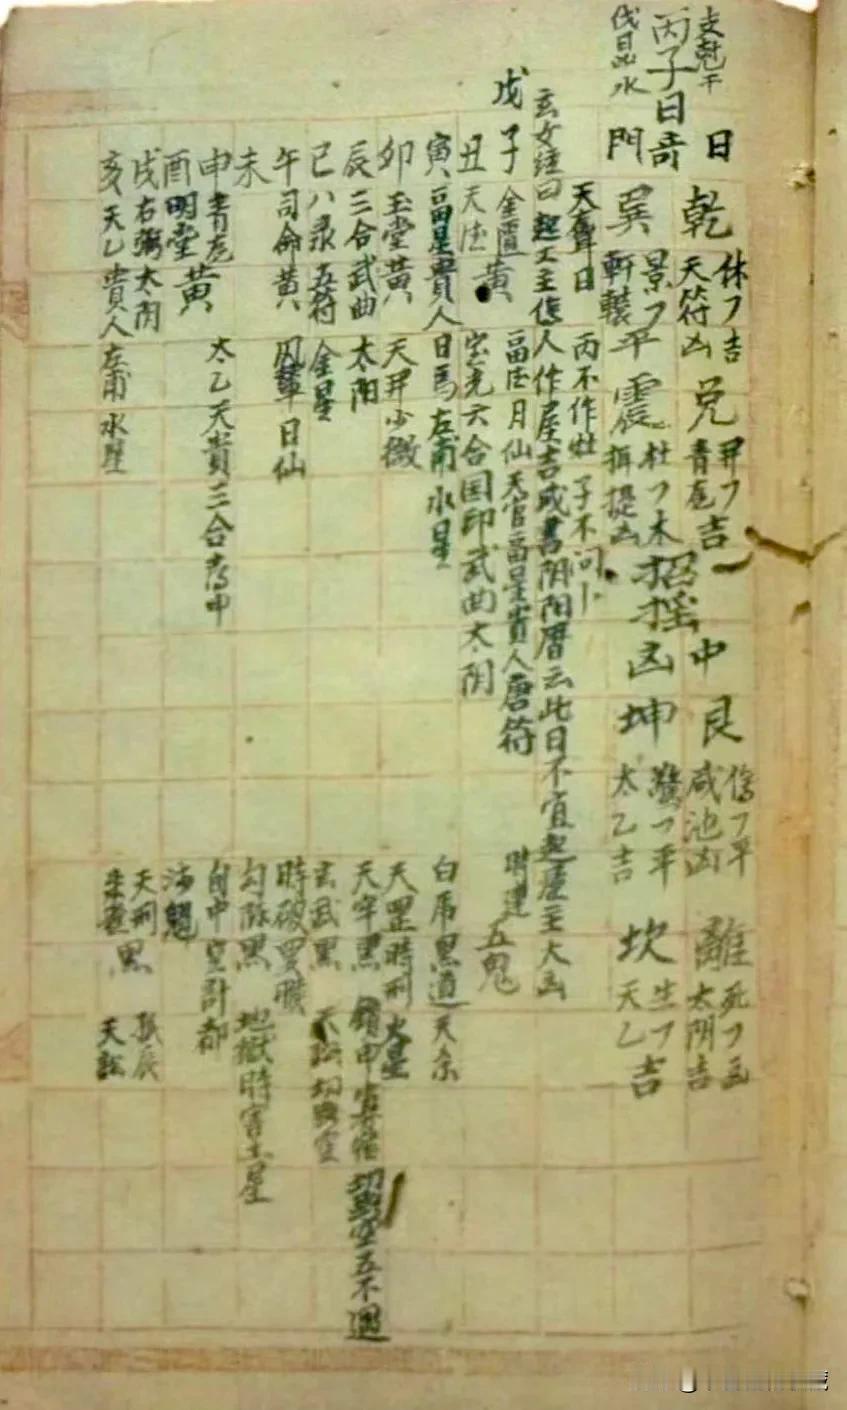 支尅干
丙子日奇
伐日 水
日
門
乾 休フ吉 天符凶
兌 開フ吉 青龙
中
艮 傷フ平 咸池凶
離 死フ凶 太阴吉
巽 景フ 軒轅平
震 杜フ木 摄提凶
招摇凶
坤 驚フ平 太乙吉
坎 生フ 天乙吉
天聋日 丙不作灶 子不问卜
玄女经曰起工主 人作屋吉 成書阴阳曆云此日不宜起屋主大凶
戊子 金匱黄 福德月仙天官福星貴人唐符 时建 五鬼
丑 天德 宝光六合国印武曲太阴
寅 福星貴人 日馬左甫水星 白虎黑道天
卯 玉堂黄 天开少微 天罡時刑 火星
辰 三合武曲 太阳 天牢黑 五不遇
巳 八录五符 金星 玄武黑
午 司命黄 凤輦日仙 時破
未 勾陈黑 地獄時害土星
申 青龙 太乙天貴三合 旬中空計都
酉 明堂黄
戌 右弼太阴 天刑黑
亥 天乙貴人 左甫水星 朱雀 天訟